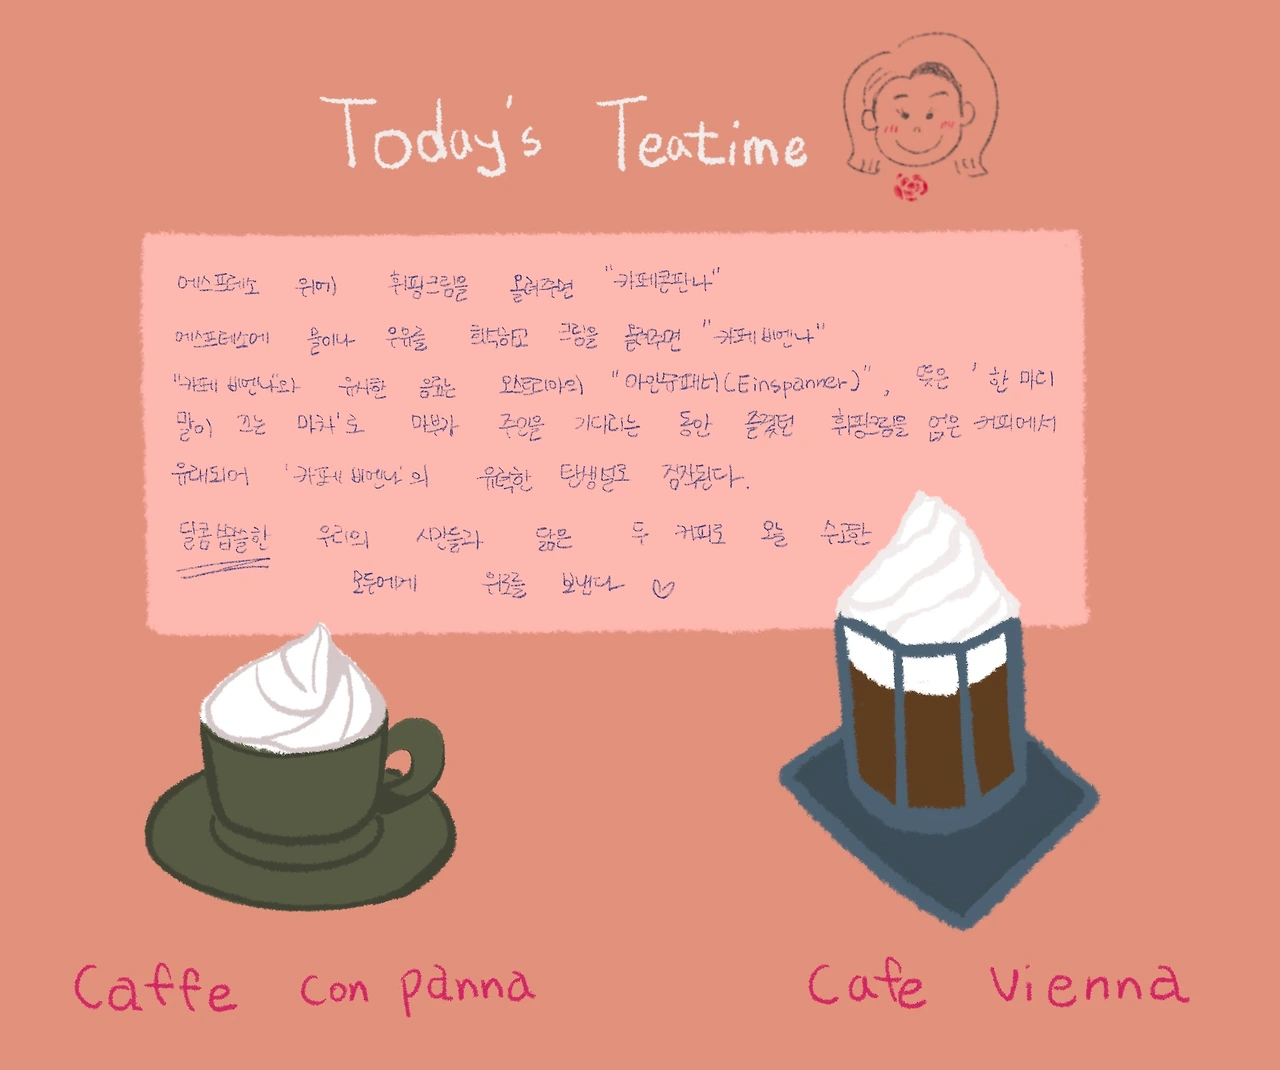 Today's Teatime
에스프레소 위에 휘핑크림을 올려주면 "카페콘판나"
에스프레소에 물이나 우유를 희석하고 크림을 올려주면 "카페 비엔나"
"카페 비엔나"와 유사한 음료는 오스트리아의 "아인슈패너(Einspanner)", 뜻은 '한 마리
말이 끄는 마차'로 마부가 주인을 기다리는 동안 즐겼던 휘핑크림을 얹은 커피에서
유래되어 '카페 비엔나'의 유력한 탄생설로 짐작된다.
달콤쌉쌀한 우리의 시간들과 닮은 두 커피로 오늘 수고한
모두에게 위로를 보낸다 ♡
Caffe con panna
Cafe Vienna